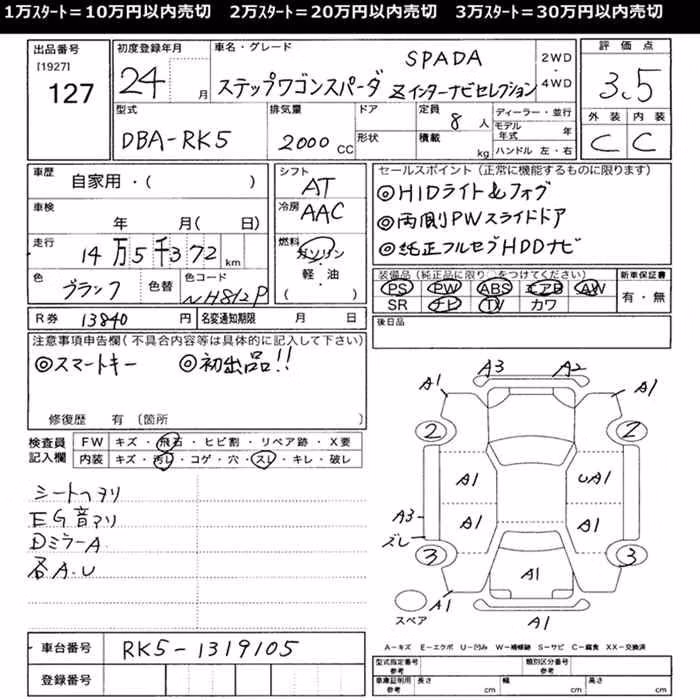 1万ｽﾀｰﾄ＝10万円以内売切　2万ｽﾀｰﾄ＝20万円以内売切　3万ｽﾀｰﾄ＝30万円以内売切
出品番号
[1927]
127
初度登録年月
24 月
車名・グレード
SPADA
ステップワゴンスパーダ Zインターナビセレクション
2WD
・
4WD
評価点
3.5
外装 内装
C C
型式
DBA-RK5
排気量
2000 CC
ドア
形状
定員
8 人
積載
kg
ディーラー・並行
モデル年式 年
ハンドル 左・右
車歴
自家用・( )
車検
年 月( 日)
走行
14万5千372 km
色
ブラック
色替
色コード
NH812P
シフト
AT
冷房
AAC
燃料
ガソリン
・
軽・油
( )
セールスポイント(正常に機能するものに限ります)
◎HIDライト&フォグ
◎両側PWスライドドア
◎純正フルセグHDDナビ
装備品(純正品に限り○をつけてください)
PS PW ABS エアB AW
SR ナビ TV カワ
新車保証書
有・無
R券 13840 円
名変通知期限 月 日
後日品
注意事項申告欄(不具合内容等は具体的に記入して下さい)
◎スマートキー ◎初出品!!
修復歴 有 (箇所 )
検査員
記入欄
FW キズ・飛石・ヒビ割・リペア跡・X要
内装 キズ・汚レ・コゲ・穴・スレ・キレ・破レ
シートヘタリ
EG音アリ
DミラーA
各A.U
A3 A2
A1 A1
2 2
A1 UA1
A3
ズレ
A1 A1
3 3
A1
A1
スペア
A1
車台番号 RK5-1319105
登録番号
A－キズ E－エクボ U－凹み W－補修跡 S－サビ C－腐食 XX－交換済
型式指定番号
参考
類別区分番号
参考
車庫証明用
参考
長さ cm
幅 cm
高さ cm